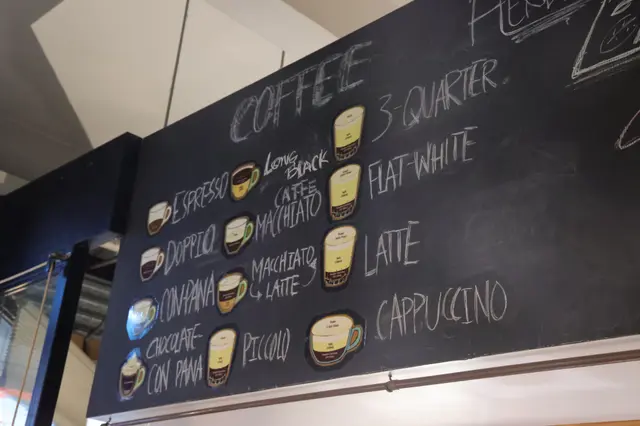 COFFEE
ESPRESSO
DOPPIO
CON PANA
CHOCOLATE
CON PANA
LONG
BLACK
CAFFE
MACCHIATO
MACCHIATO
LATTE
PICCOLO
3-QUARTER
FLAT-WHITE
LATTE
CAPPUCCINO